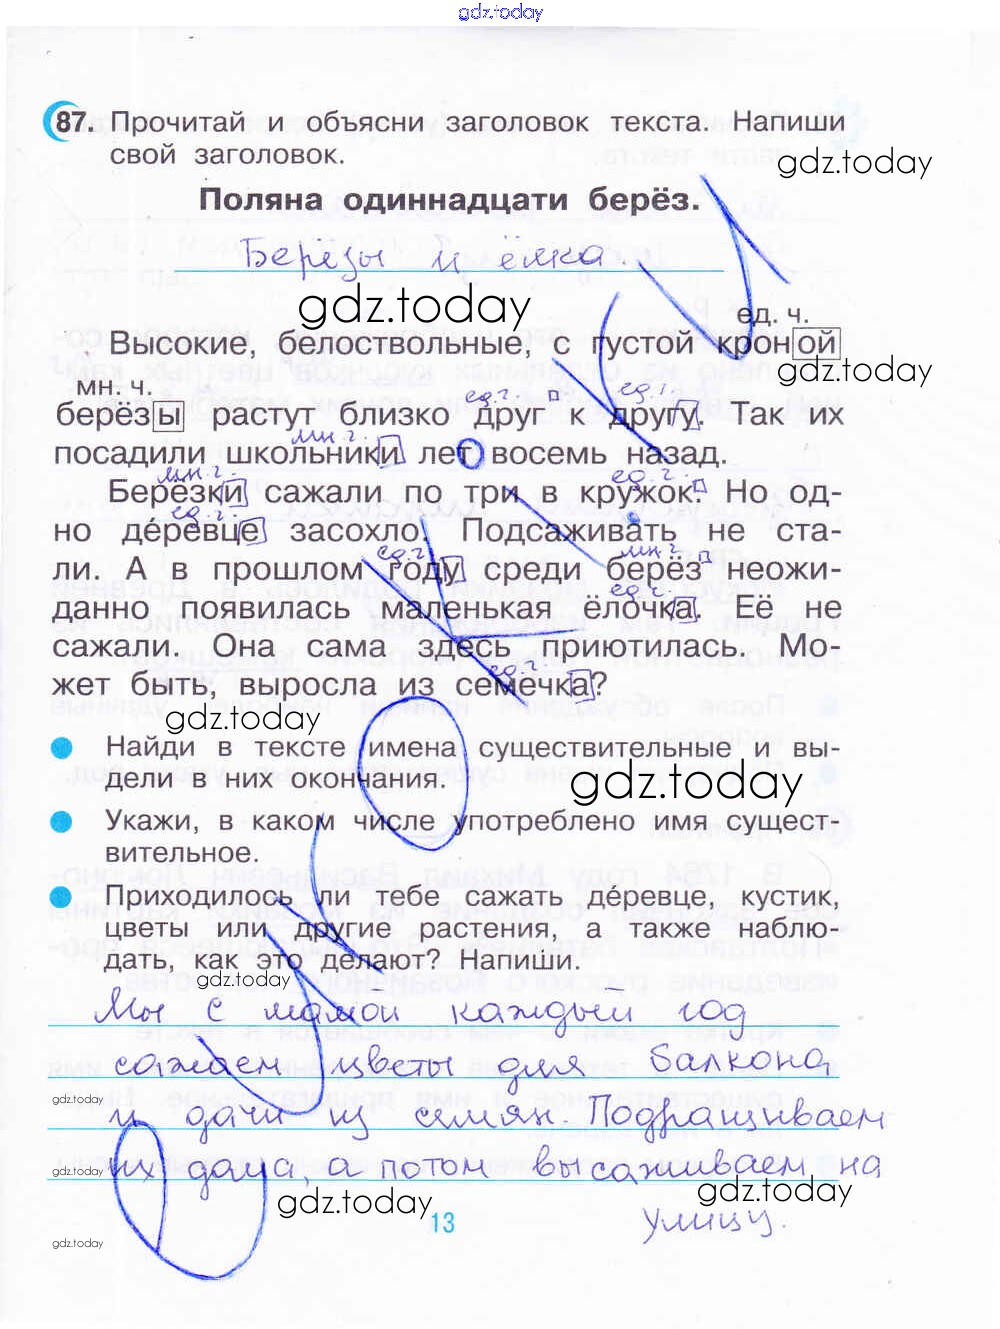 gdz.today
87. Прочитай и объясни заголовок текста. Напиши
свой заголовок.
gdz.today
Поляна одиннадцати берёз.
Берёзы и ёлка.
gdz.today
ед. ч.
Высокие, белоствольные, с густой кроной
gdz.today
мн. ч.
ед.ч. ед.ч.
берёзы растут близко друг к другу. Так их
мн.ч.
посадили школьники лет восемь назад.
мн.ч. ед.ч.
Березки сажали по три в кружок. Но од-
ед.ч.
но де́ревце засохло. Подсаживать не ста-
ед.ч. мн.ч.
ли. А в прошлом году среди берёз неожи-
ед.ч.
данно появилась маленькая ёлочка. Её не
сажали. Она сама здесь приютилась. Мо-
ед.ч.
жет быть, выросла из семечка?
gdz.today
Найди в тексте имена существительные и вы-
дели в них окончания.
gdz.today
Укажи, в каком числе употреблено имя сущест-
вительное.
Приходилось ли тебе сажать де́ревце, кустик,
цветы или другие растения, а также наблю-
дать, как это делают? Напиши.
gdz.today
Мы с мамой каждый год
сажаем цветы для балкона
gdz.today
и дачи из семян. Подращиваем
gdz.today
их дома, а потом высаживаем на
gdz.today
gdz.today
13
улицу.
gdz.today